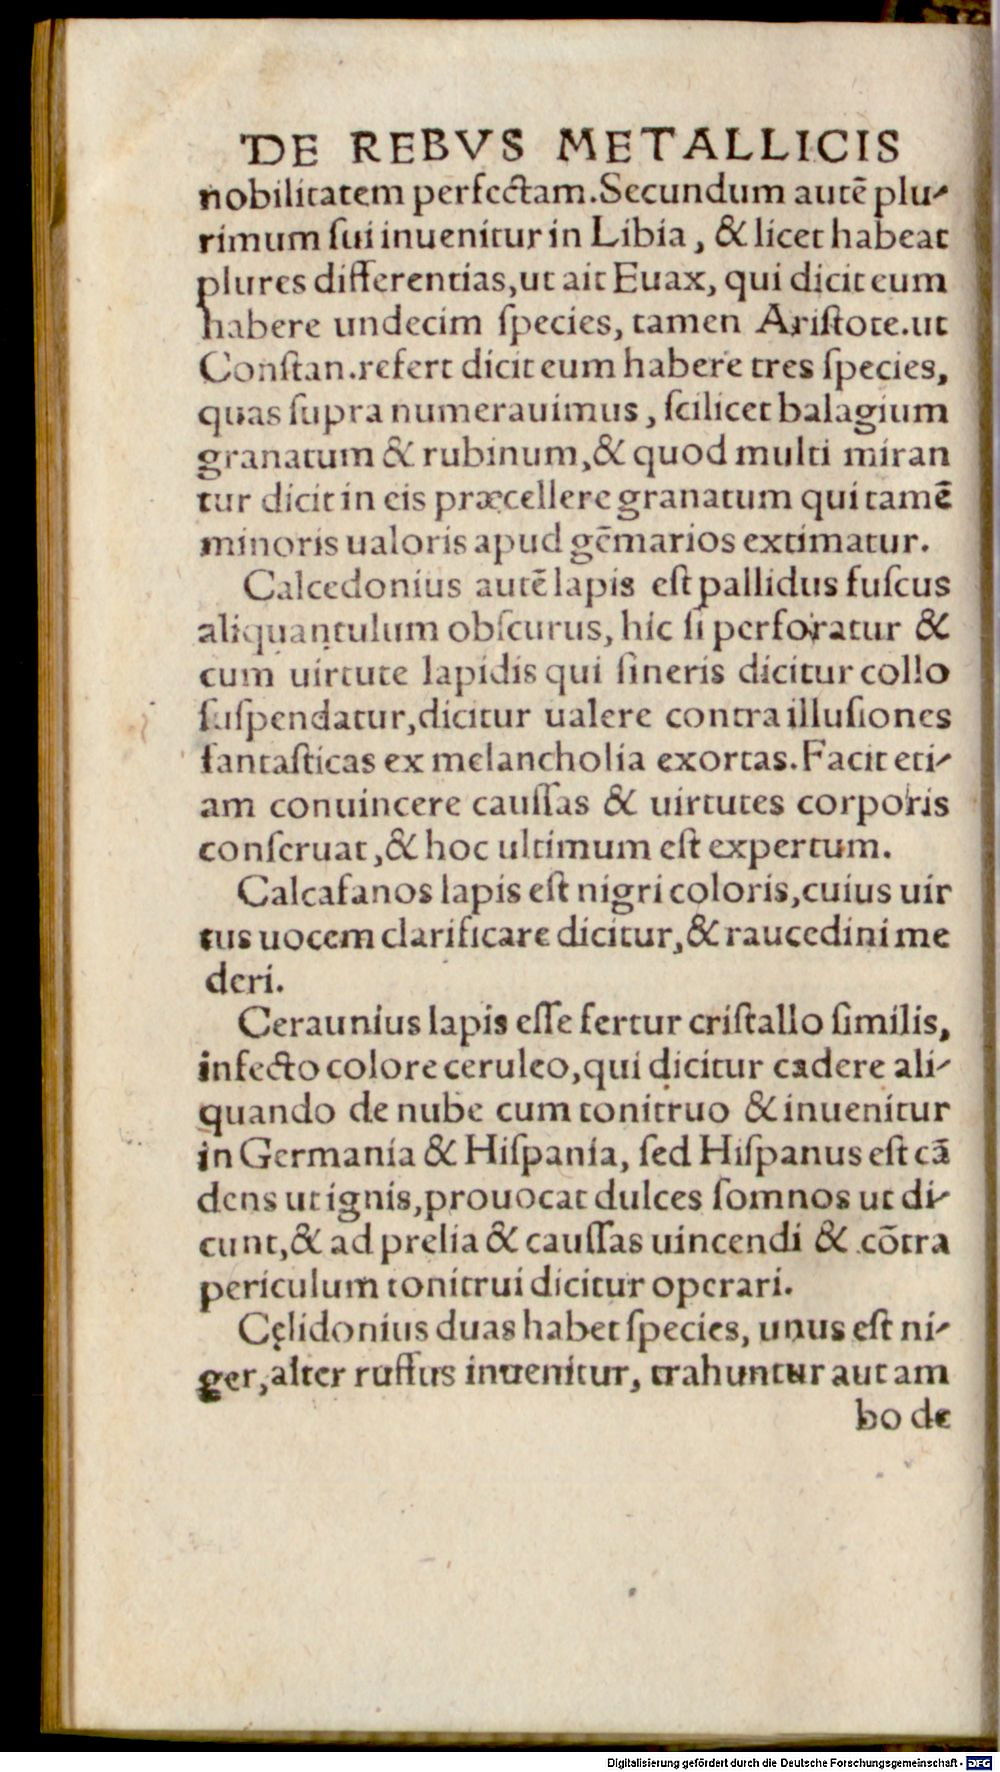 DE REBVS METALLICIS
nobilitatem perfectam.Secundum autē plu-
rimum ſui inuenitur in Libia, & licet habeat
plures differentias,ut ait Euax, qui dicit eum
habere undecim ſpecies, tamen Ariſtote.ut
Conſtan.refert dicit eum habere tres ſpecies,
quas ſupra numerauimus, ſcilicet balagium
granatum & rubinum,& quod multi miran
tur dicit in eis præcellere granatum qui tamē
minoris ualoris apud gēmarios extimatur.
Calcedonius autē lapis eſt pallidus fuſcus
aliquantulum obſcurus, hic ſi perforatur &
cum uirtute lapidis qui ſineris dicitur collo
ſuſpendatur,dicitur ualere contra illuſiones
fantaſticas ex melancholia exortas.Facit eti-
am conuincere cauſſas & uirtutes corporis
conſeruat,& hoc ultimum eſt expertum.
Calcafanos lapis eſt nigri coloris,cuius uir
tus uocem clarificare dicitur,& raucedini me
deri.
Ceraunius lapis eſſe fertur criſtallo ſimilis,
infecto colore ceruleo,qui dicitur cadere ali-
quando de nube cum tonitruo & inuenitur
in Germania & Hiſpania, ſed Hiſpanus eſt cā
dens ut ignis,prouocat dulces ſomnos ut di-
cunt,& ad prelia & cauſſas uincendi & cōtra
periculum tonitrui dicitur operari.
Cęlidonius duas habet ſpecies, unus eſt ni-
ger,alter ruffus inuenitur, trahuntur aut am
bo de
Digitalisierung gefördert durch die Deutsche Forschungsgemeinschaft - DFG